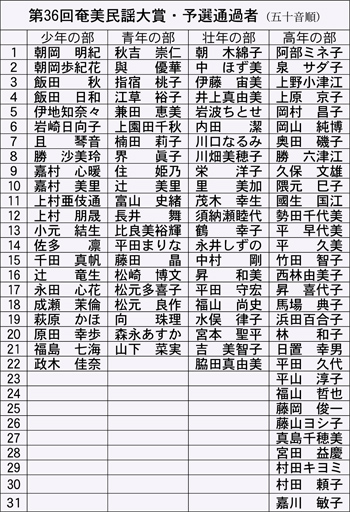 第36回奄美民謡大賞・予選通過者（五十音順）
少年の部 青年の部 壮年の部 高年の部
1 朝岡 明紀 秋吉 崇仁 朝 木綿子 阿部ミネ子
2 朝岡歩紀花 與 優華 中 ほず美 泉 サダ子
3 飯田 秋 指宿 桃子 伊藤 宙美 上野小津江
4 飯田 日和 江草 裕子 井上真由美 上原 京子
5 伊地知奈々 兼田 恵美 岩波ちとせ 岡村 昌子
6 岩崎日向子 上園田千秋 内田 潔 岡山 純博
7 且 琴音 楠田 莉子 川口なるみ 奥田 磯子
8 勝 沙美玲 界 眞子 川畑美穂子 勝 六津江
9 嘉村 心暖 住 姫乃 栄 洋子 久保 文雄
10 嘉村 美里 辻 美里 里 美加 隈元 巳子
11 上村亜伎通 富山 史緒 茂木 幸生 國生 国江
12 上村 朋晟 長井 舞 須納瀬睦代 勢田千代美
13 小元 結生 比良美裕輝 鶴 幸子 平 早代美
14 佐多 凛 平田まりな 永井しずの 平 久美
15 千田 真帆 藤田 晶 中村 剛 竹田 智子
16 辻 竜生 松崎 博文 昇 和美 西林由美子
17 永田 心花 松元多喜子 平田 守宏 昇 喜代子
18 成瀬 茉倫 松元 良作 福山 尚史 馬場 典子
19 萩原 かほ 向 珠理 水俣 律子 浜田百合子
20 原田 幸歩 森永あすか 宮本 聖平 林 和子
21 福島 七海 山下 菜実 吉 美智子 日置 幸男
22 政木 佳奈 脇田真由美 平田 久代
23 平山 淳子
24 福山 哲也
25 藤岡 俊一
26 藤山ヨシ子
27 真島千穂美
28 宮田 益慶
29 村田キヨミ
30 村田 頼子
31 嘉川 敏子